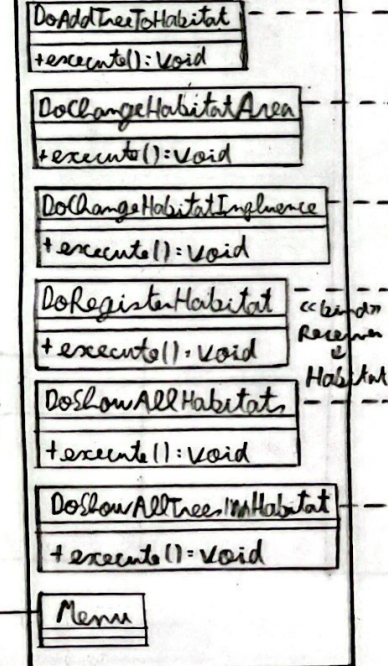 DoAddTreeToHabitat
+execute():void
DoChangeHabitatArea
+execute():void
DoChangeHabitatInfluence
+execute():void
DoRegisterHabitat
+execute():void
<<bind>>
Receiver
↓
Habitat
DoShowAllHabitats
+execute():void
DoShowAllTreesInHabitat
+execute():void
Menu